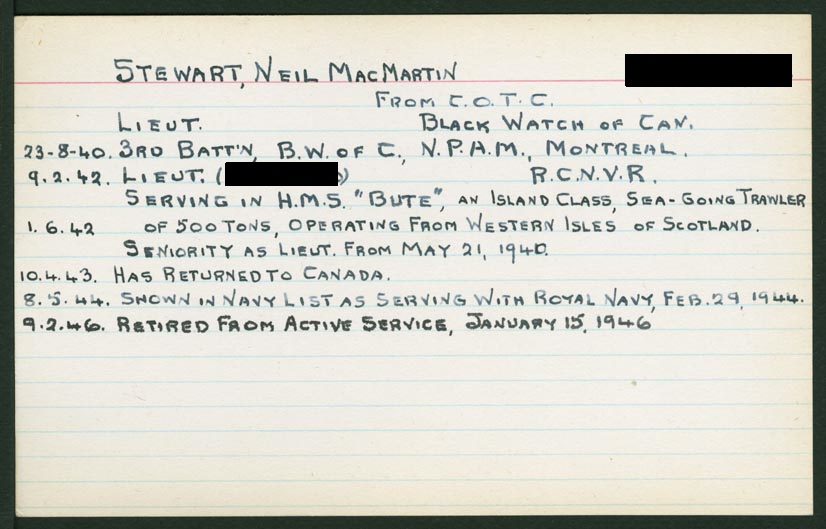 STEWART, NEIL MACMARTIN
FROM C.O.T.C.
LIEUT. BLACK WATCH OF CAN.
23-8-40. 3RD BATT'N, B.W. OF C., N.P.A.M., MONTREAL.
9.2.42. LIEUT. ( ) R.C.N.V.R.
SERVING IN H.M.S. "BUTE", AN ISLAND CLASS, SEA-GOING TRAWLER
1.6.42 OF 500 TONS, OPERATING FROM WESTERN ISLES OF SCOTLAND.
SENIORITY AS LIEUT. FROM MAY 21, 1940.
10.4.43. HAS RETURNED TO CANADA.
8.5.44. SHOWN IN NAVY LIST AS SERVING WITH ROYAL NAVY, FEB. 29, 1944.
9.2.46. RETIRED FROM ACTIVE SERVICE, JANUARY 15, 1946